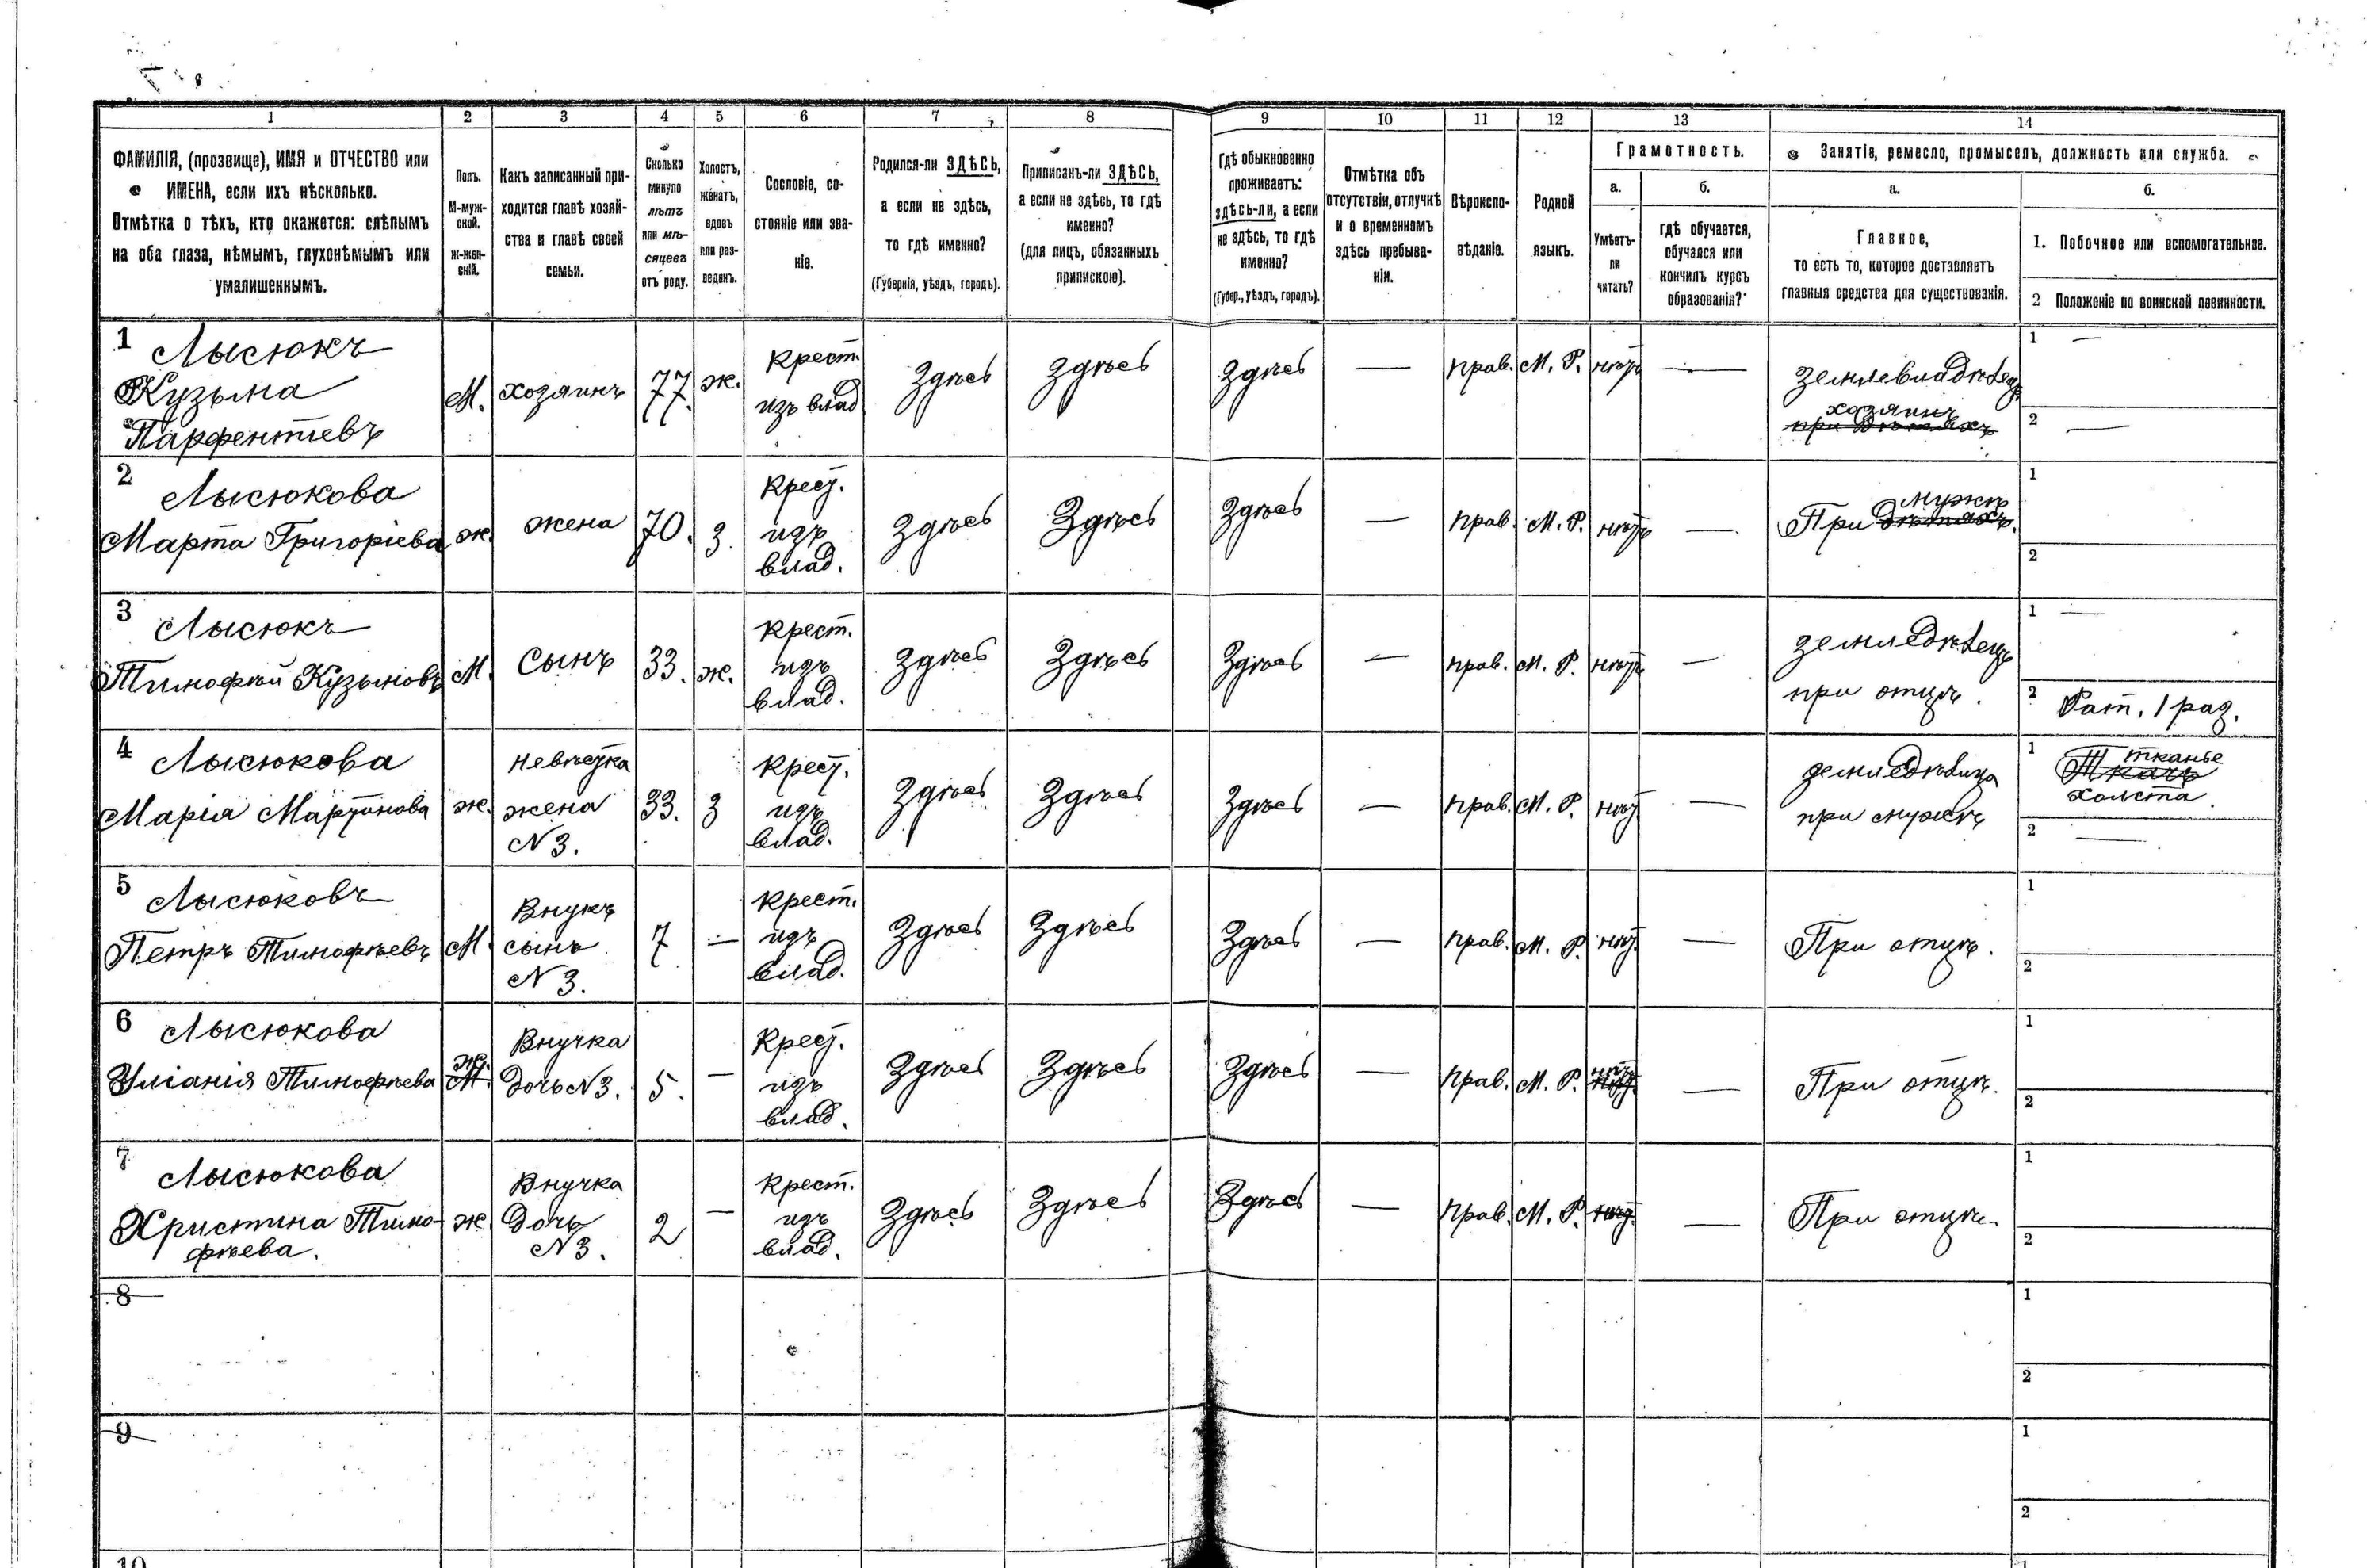 1 2 3 4 5 6 7 8 9 10 11 12 13 14
ФАМИЛІЯ, (прозвище), ИМЯ и ОТЧЕСТВО или
ИМЕНА, если ихъ нѣсколько.
Отмѣтка о тѣхъ, кто окажется: слѣпымъ
на оба глаза, нѣмымъ, глухонѣмымъ или
умалишеннымъ.
Полъ.
М-муж-
ской.
Ж-жен-
скій.
Какъ записанный при-
ходится главѣ хозяй-
ства и главѣ своей
семьи.
Сколько
минуло
лѣтъ
или мѣ-
сяцевъ
отъ роду.
Холостъ,
женатъ,
вдовъ
или раз-
веденъ.
Сословіе, со-
стояніе или зва-
ніе.
Родился-ли ЗДѢСЬ,
а если не здѣсь,
то гдѣ именно?
(Губернія, уѣздъ, городъ).
Приписанъ-ли ЗДѢСЬ,
а если не здѣсь, то гдѣ
именно?
(для лицъ, обязанныхъ
припискою).
Гдѣ обыкновенно
проживаетъ:
здѣсь-ли, а если
не здѣсь, то гдѣ
именно?
(Губер., уѣздъ, городъ).
Отмѣтка объ
отсутствіи, отлучкѣ
и о временномъ
здѣсь пребыва-
ніи.
Вѣроиспо-
вѣданіе.
Родной
языкъ.
Грамотность.
а.
Умѣетъ-
ли
читать?
б.
гдѣ обучается,
обучался или
кончилъ курсъ
образованія?
Занятіе, ремесло, промыселъ, должность или служба.
а.
Главное,
то есть то, которое доставляетъ
главныя средства для существованія.
б.
1. Побочное или вспомогательное.
2 Положеніе по воинской повинности.
1 Лысюкъ
Кузьма
Парфентіевъ
М.
хозяинъ
77.
ж.
Крест.
изъ влад
Здѣсь
Здѣсь
Здѣсь
—
прав.
М. Р.
нѣтъ
—
земле владѣлец
хозяинъ
при дѣтяхъ
1 —
2 —
2 Лысюкова
Марта Григоріева
ж.
жена
70.
з.
Крест.
изъ
влад.
Здѣсь
Здѣсь
Здѣсь
—
прав.
М. Р.
нѣтъ
—
мужѣ
При дѣтяхъ.
1
2
3 Лысюкъ
Тимофѣй Кузьмовъ
М.
сынъ
33.
ж.
Крест.
изъ
влад.
Здѣсь
Здѣсь
Здѣсь
—
прав.
М. Р.
нѣтъ
—
земледѣлецъ
при отцѣ.
1 —
2 Рат. 1 раз.
4 Лысюкова
Марія Мартинова
ж.
невѣстка
жена
N 3.
33.
з
Крест.
изъ
влад.
Здѣсь
Здѣсь
Здѣсь
—
прав.
М. Р.
нѣт
—
земледѣлица
при мужѣ
1 тканье
Ткачъ
холста.
2 —
5 Лысюковъ
Петръ Тимофѣевъ
М.
Внукъ
сынъ
N 3.
7
—
Крест.
изъ
влад.
Здѣсь
Здѣсь
Здѣсь
—
прав.
М. Р.
нѣт.
—
При отцѣ.
1
2
6 Лысюкова
Уліанія Тимофѣева
ж.
М.
Внучка
дочь N 3.
5.
—
Крест.
изъ
влад.
Здѣсь
Здѣсь
Здѣсь
—
прав.
М. Р.
нѣтъ
нѣт.
—
При отцѣ.
1
2
7 Лысюкова
Христина Тимо-
фѣева.
ж
Внучка
дочь
N 3.
2
—
Крест.
изъ
влад.
Здѣсь
Здѣсь
Здѣсь
—
прав.
М. Р.
нѣт.
—
При отцѣ.
1
2
8
1
2
9
1
2
10
1